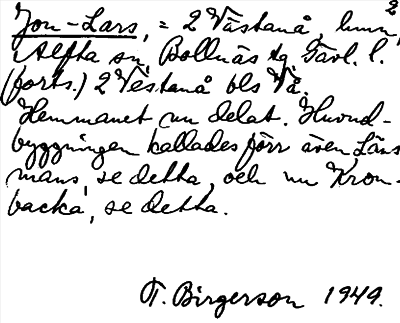 Jon-Lars, = 2 Västanå, hmn 2,
i Alfta sn, Bollnäs tg. Gävl. l.
(forts.) 2 Västanå bls Vå.
Hemmanet nu delat. Huvud-
byggningen kallades förr även Läns
mans, se detta, och nu Kron-
backa, se detta.
T. Birgerson 1949.